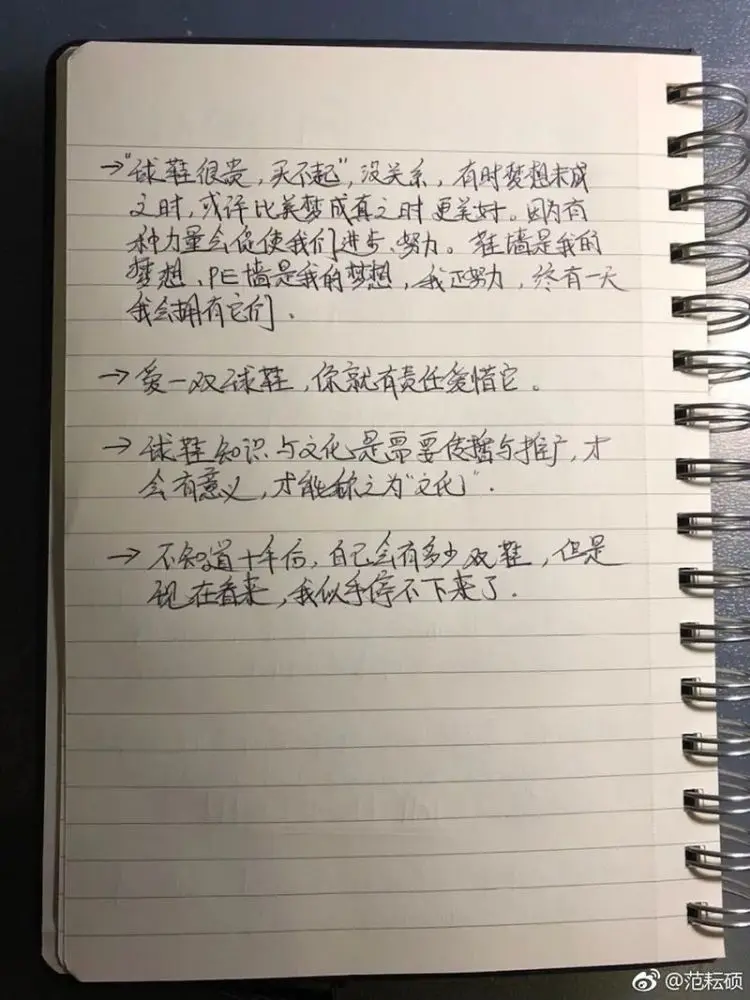 →"球鞋很贵,买不起",没关系,有时梦想未成
之时,或许比美梦成真之时更美好。因为有
种力量会促使我们进步、努力。鞋墙是我的
梦想、PE墙是我的梦想,我正努力,终有一天
我会拥有它们.
→爱一双球鞋,你就有责任爱惜它。
→球鞋知识与文化是需要传播与推广,才
会有意义,才能称之为"文化".
→不知道十年后,自己会有多少双鞋,但是
现在看来,我似乎停不下来了.
@范耘硕